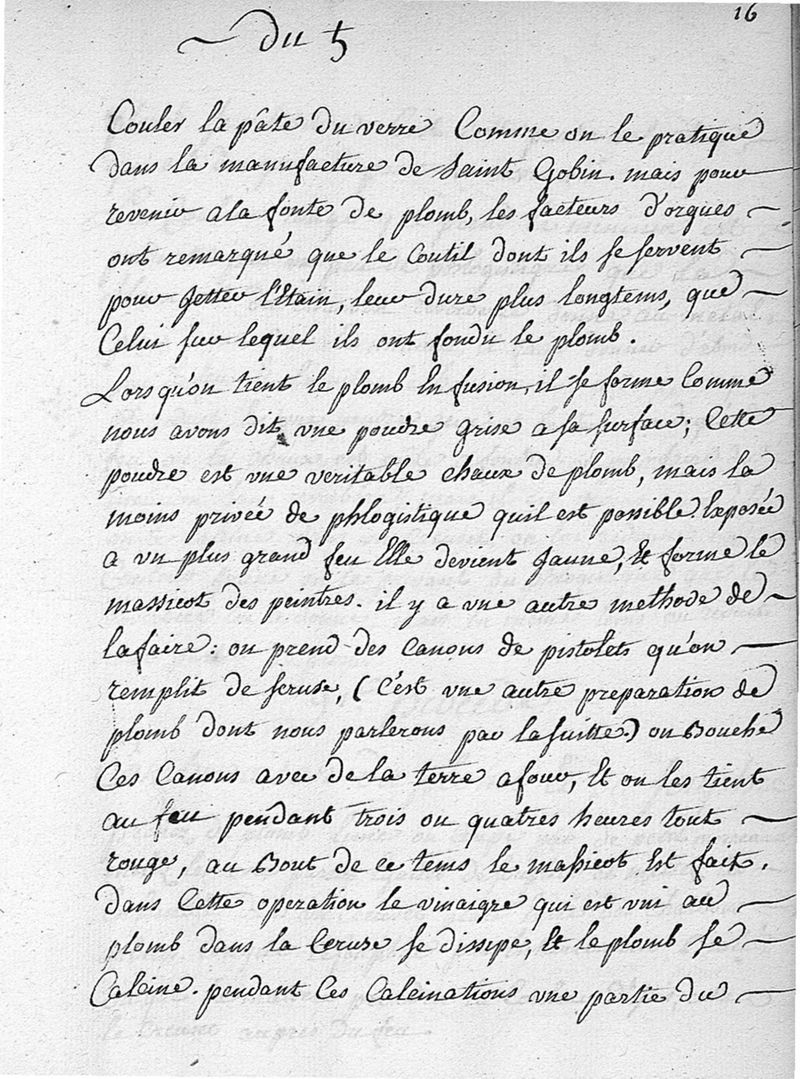 16
Du ♄
Couler la pâte du verre Comme on le pratique
dans la manufacture de Saint Gobin. mais pour
revenir a la fonte de plomb, les facteurs d'orgues
ont remarqué que le Coutil dont ils se servent
pour Jetter l'Etain, leur dure plus longtems, que
Celui sur lequel ils ont fondu le plomb.
Lorsqu'on tient le plomb En fusion, il se forme Comme
nous avons dit, vne poudre grise a sa surface; Cette
poudre est vne veritable chaux de plomb, mais la
moins privée de phlogistique quil est possible. Exposée
a vn plus grand feu Elle devient Jaune, Et forme le
massicot des peintres. il y a vne autre methode de
la faire: on prend des Canons de pistolets qu'on
remplit de seruse, (C'est vne autre preparation de
plomb dont nous parlerons par la suitte.) on Bouche
Ces Canons avec de la terre a four, Et on les tient
au feu pendant trois ou quatres heures tout
rouge, au Bout de ce tems le massicot Est fait.
dans Cette operation le vinaigre qui est vni au
plomb dans la Ceruse se dissipe, Et le plomb se
Calcine. pendant Ces Calcinations vne partie du